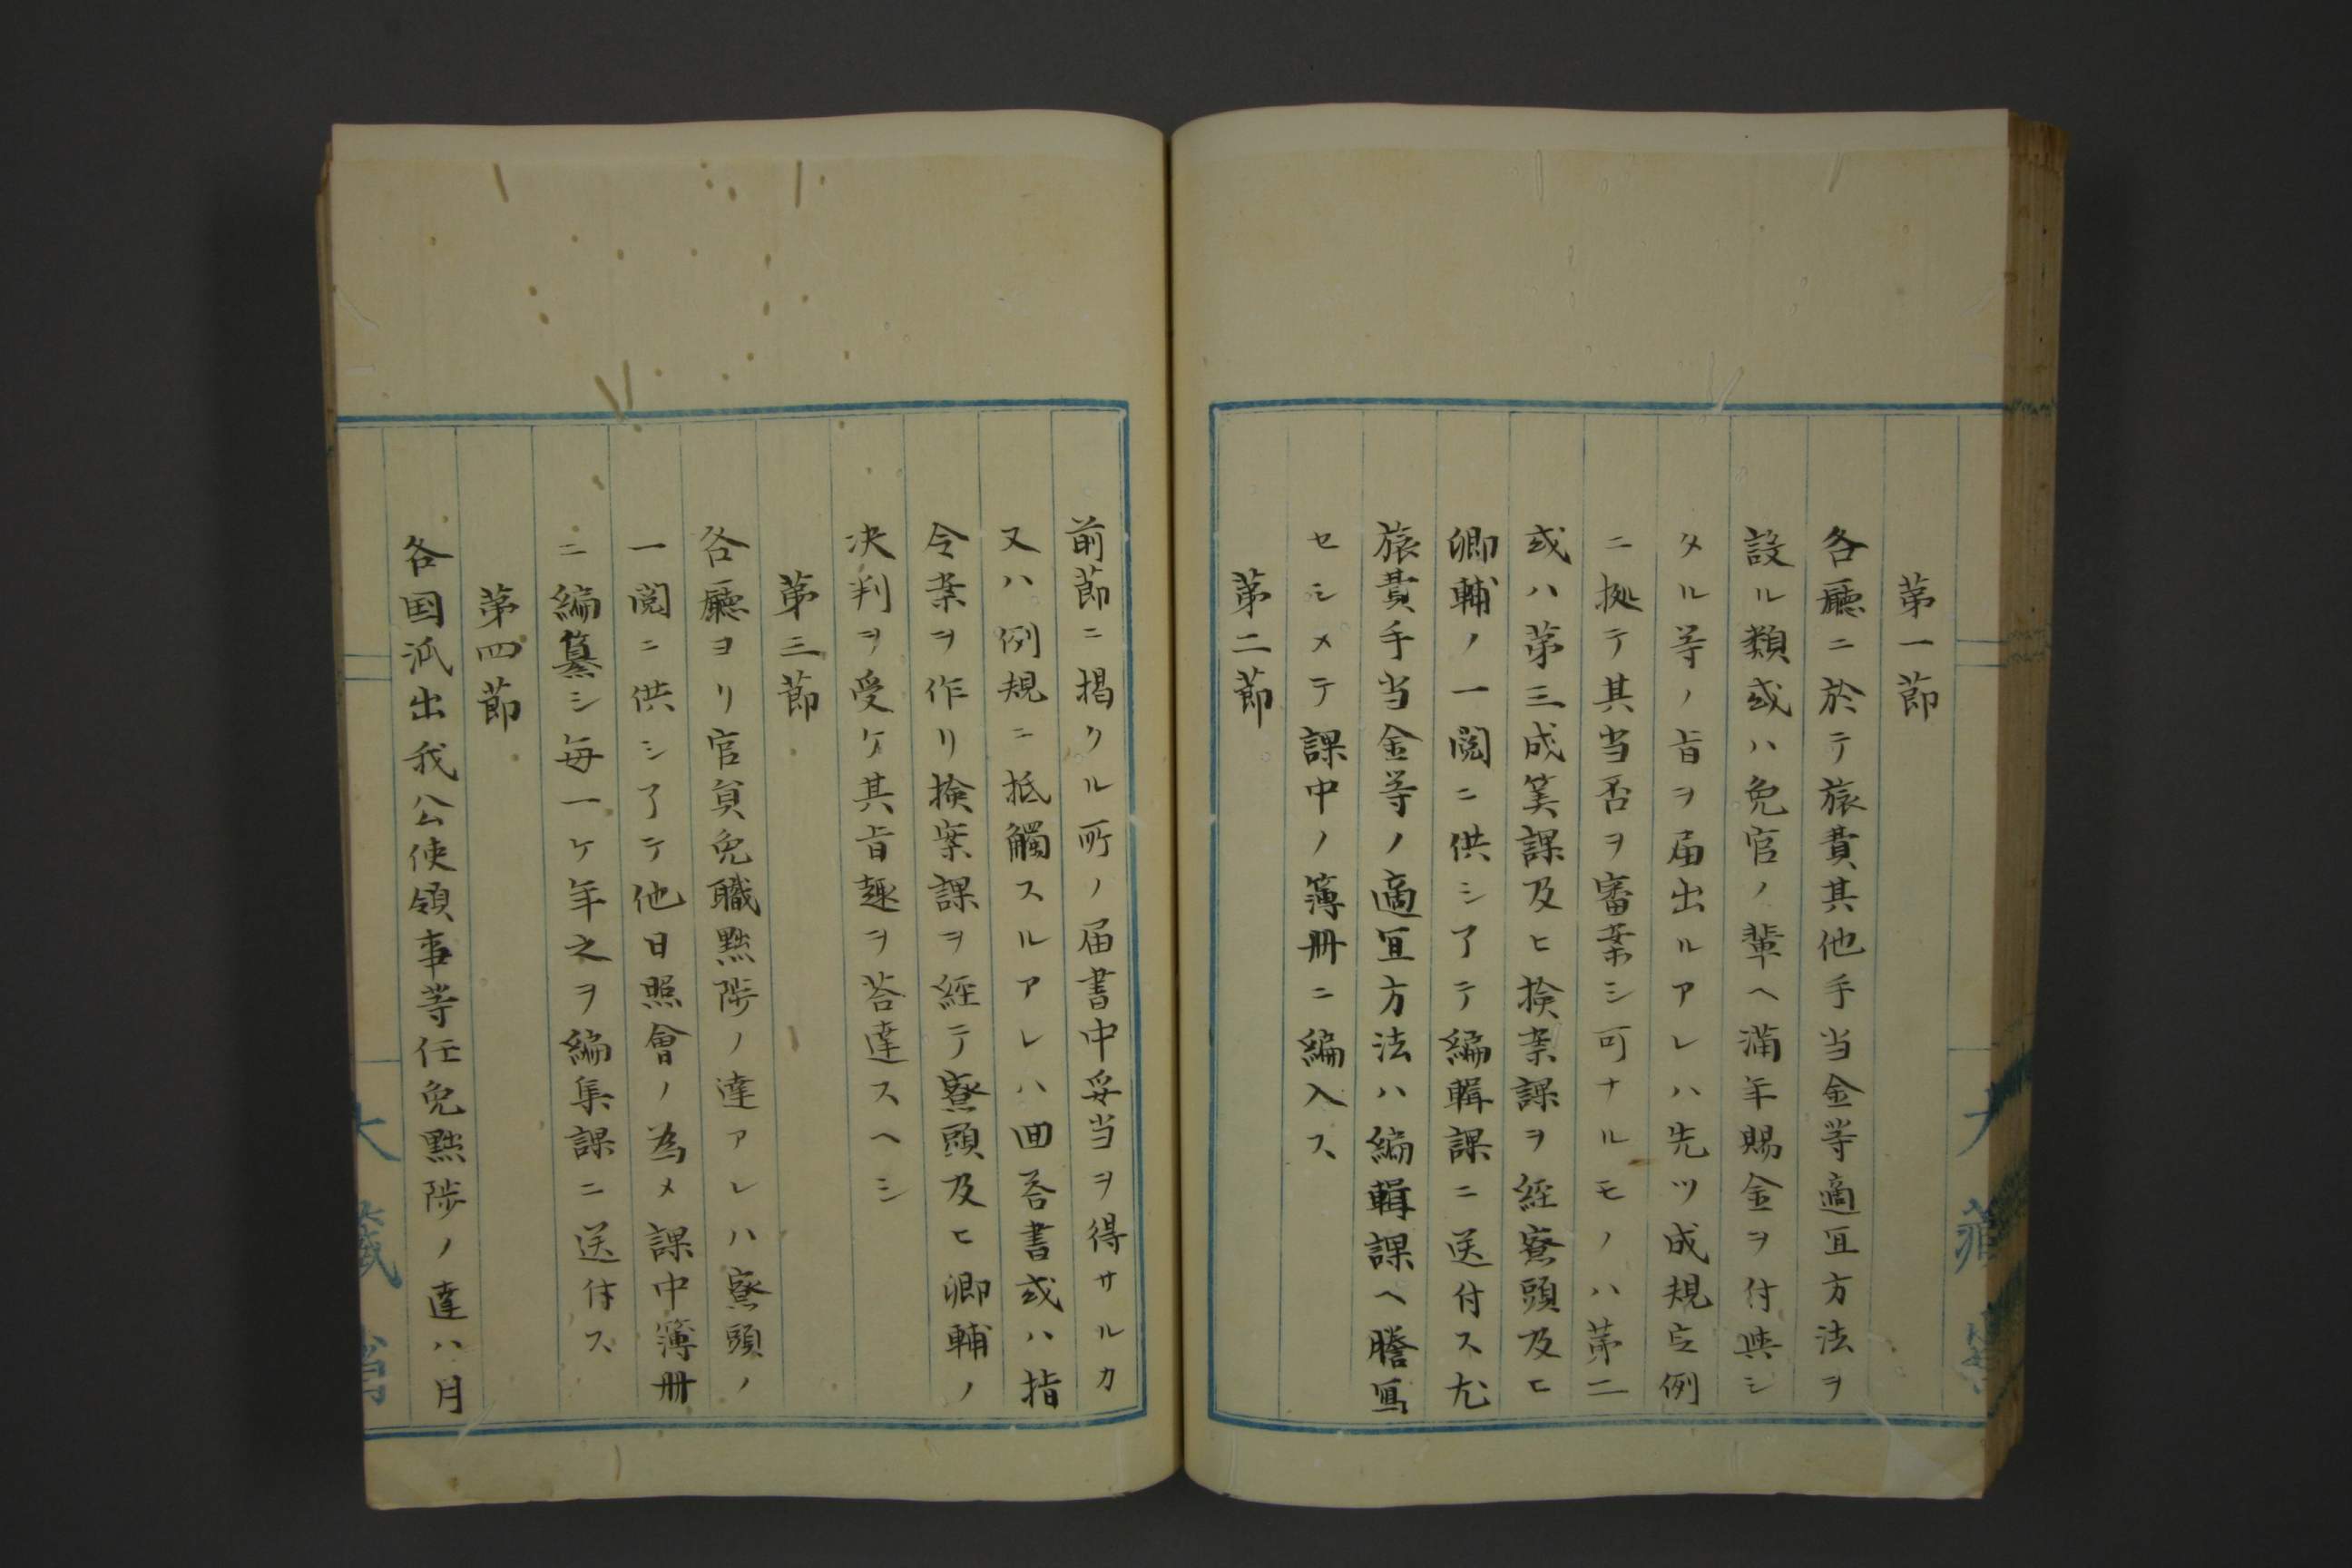 第一節
各廳ニ於テ旅費其他手当金等適宜方法ヲ
設ル類或ハ免官ノ輩ヘ満年賜金ヲ付與シ
タル等ノ旨ヲ届出ルアレハ先ツ成規定例
ニ拠テ其当否ヲ審案シ可ナルモノハ第二
或ハ第三成筭課及ヒ検案課ヲ経寮頭及ヒ
卿輔ノ一閲ニ供シ了テ編輯課ニ送付ス尤
旅費手当金等ノ適宜方法ハ編輯課ヘ謄冩
セシメテ課中ノ簿冊ニ編入ス
第二節
前節ニ掲クル所ノ届書中妥当ヲ得サルカ
又ハ例規ニ抵觸スルアレハ回荅書或ハ指
令案ヲ作リ検案課ヲ経テ寮頭及ヒ卿輔ノ
决判ヲ受ケ其旨趣ヲ荅達スヘシ
第三節
各廳ヨリ官員免職黜陟ノ達アレハ寮頭ノ
一閲ニ供シ了テ他日照會ノ為メ課中簿冊
ニ編纂シ毎一ケ年之ヲ編集課ニ送付ス
第四節
各国派出我公使領事等任免黜陟ノ達ハ月
大藏省